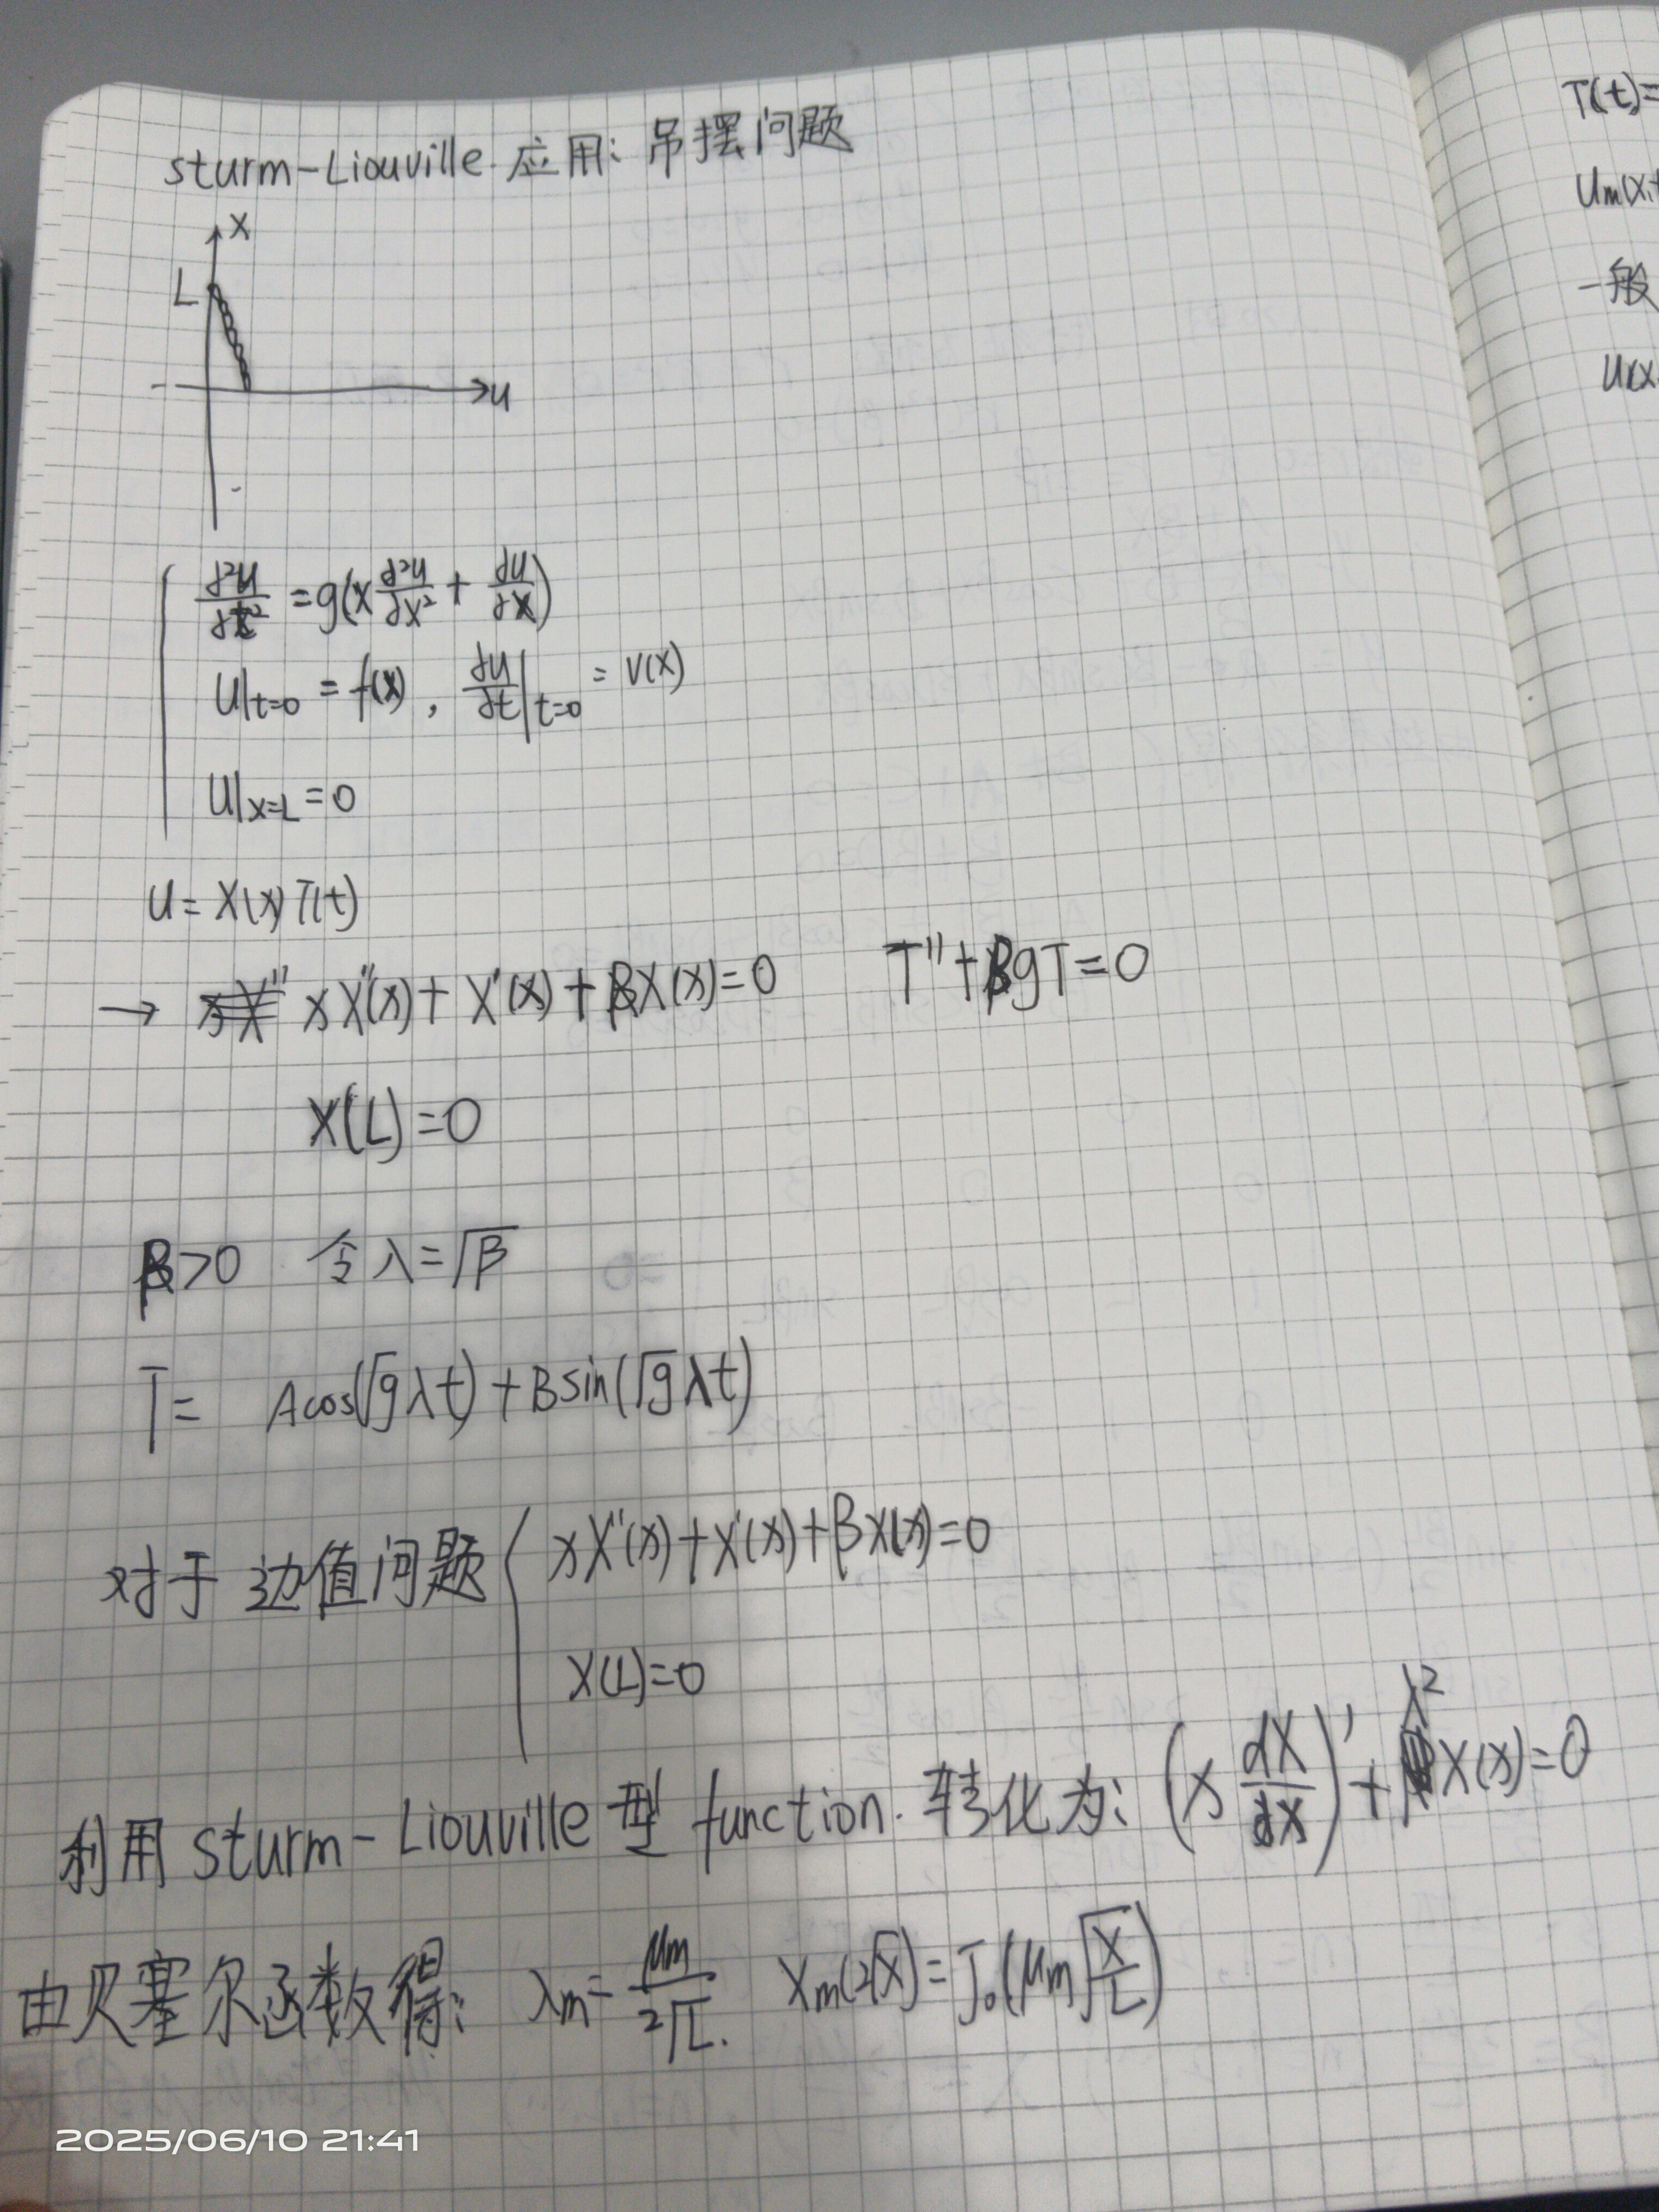 sturm-Liouville 应用: 吊摆问题
x
L
u
∂²u/∂t² = g(x ∂²u/∂x² + ∂u/∂x)
u|t=0 = f(x), ∂u/∂t|t=0 = v(x)
u|x=L = 0
u = X(x)T(t)
→ xX''(x) + X'(x) + βX(x) = 0 T'' + βgT = 0
X(L) = 0
β>0 令 λ = √β
T = Acos(√g λt) + Bsin(√g λt)
对于 边值问题 { xX''(x) + X'(x) + βX(x) = 0
X(L) = 0
利用 sturm-Liouville 型 function. 转化为: (x dX/dx)' + λ²X(x) = 0
由贝塞尔函数得: λm = μm/2√L. Xm(2√x) = J₀(μm√(x/L))
T(t)=
Um(x,t
一般
U(x
2025/06/10 21:41